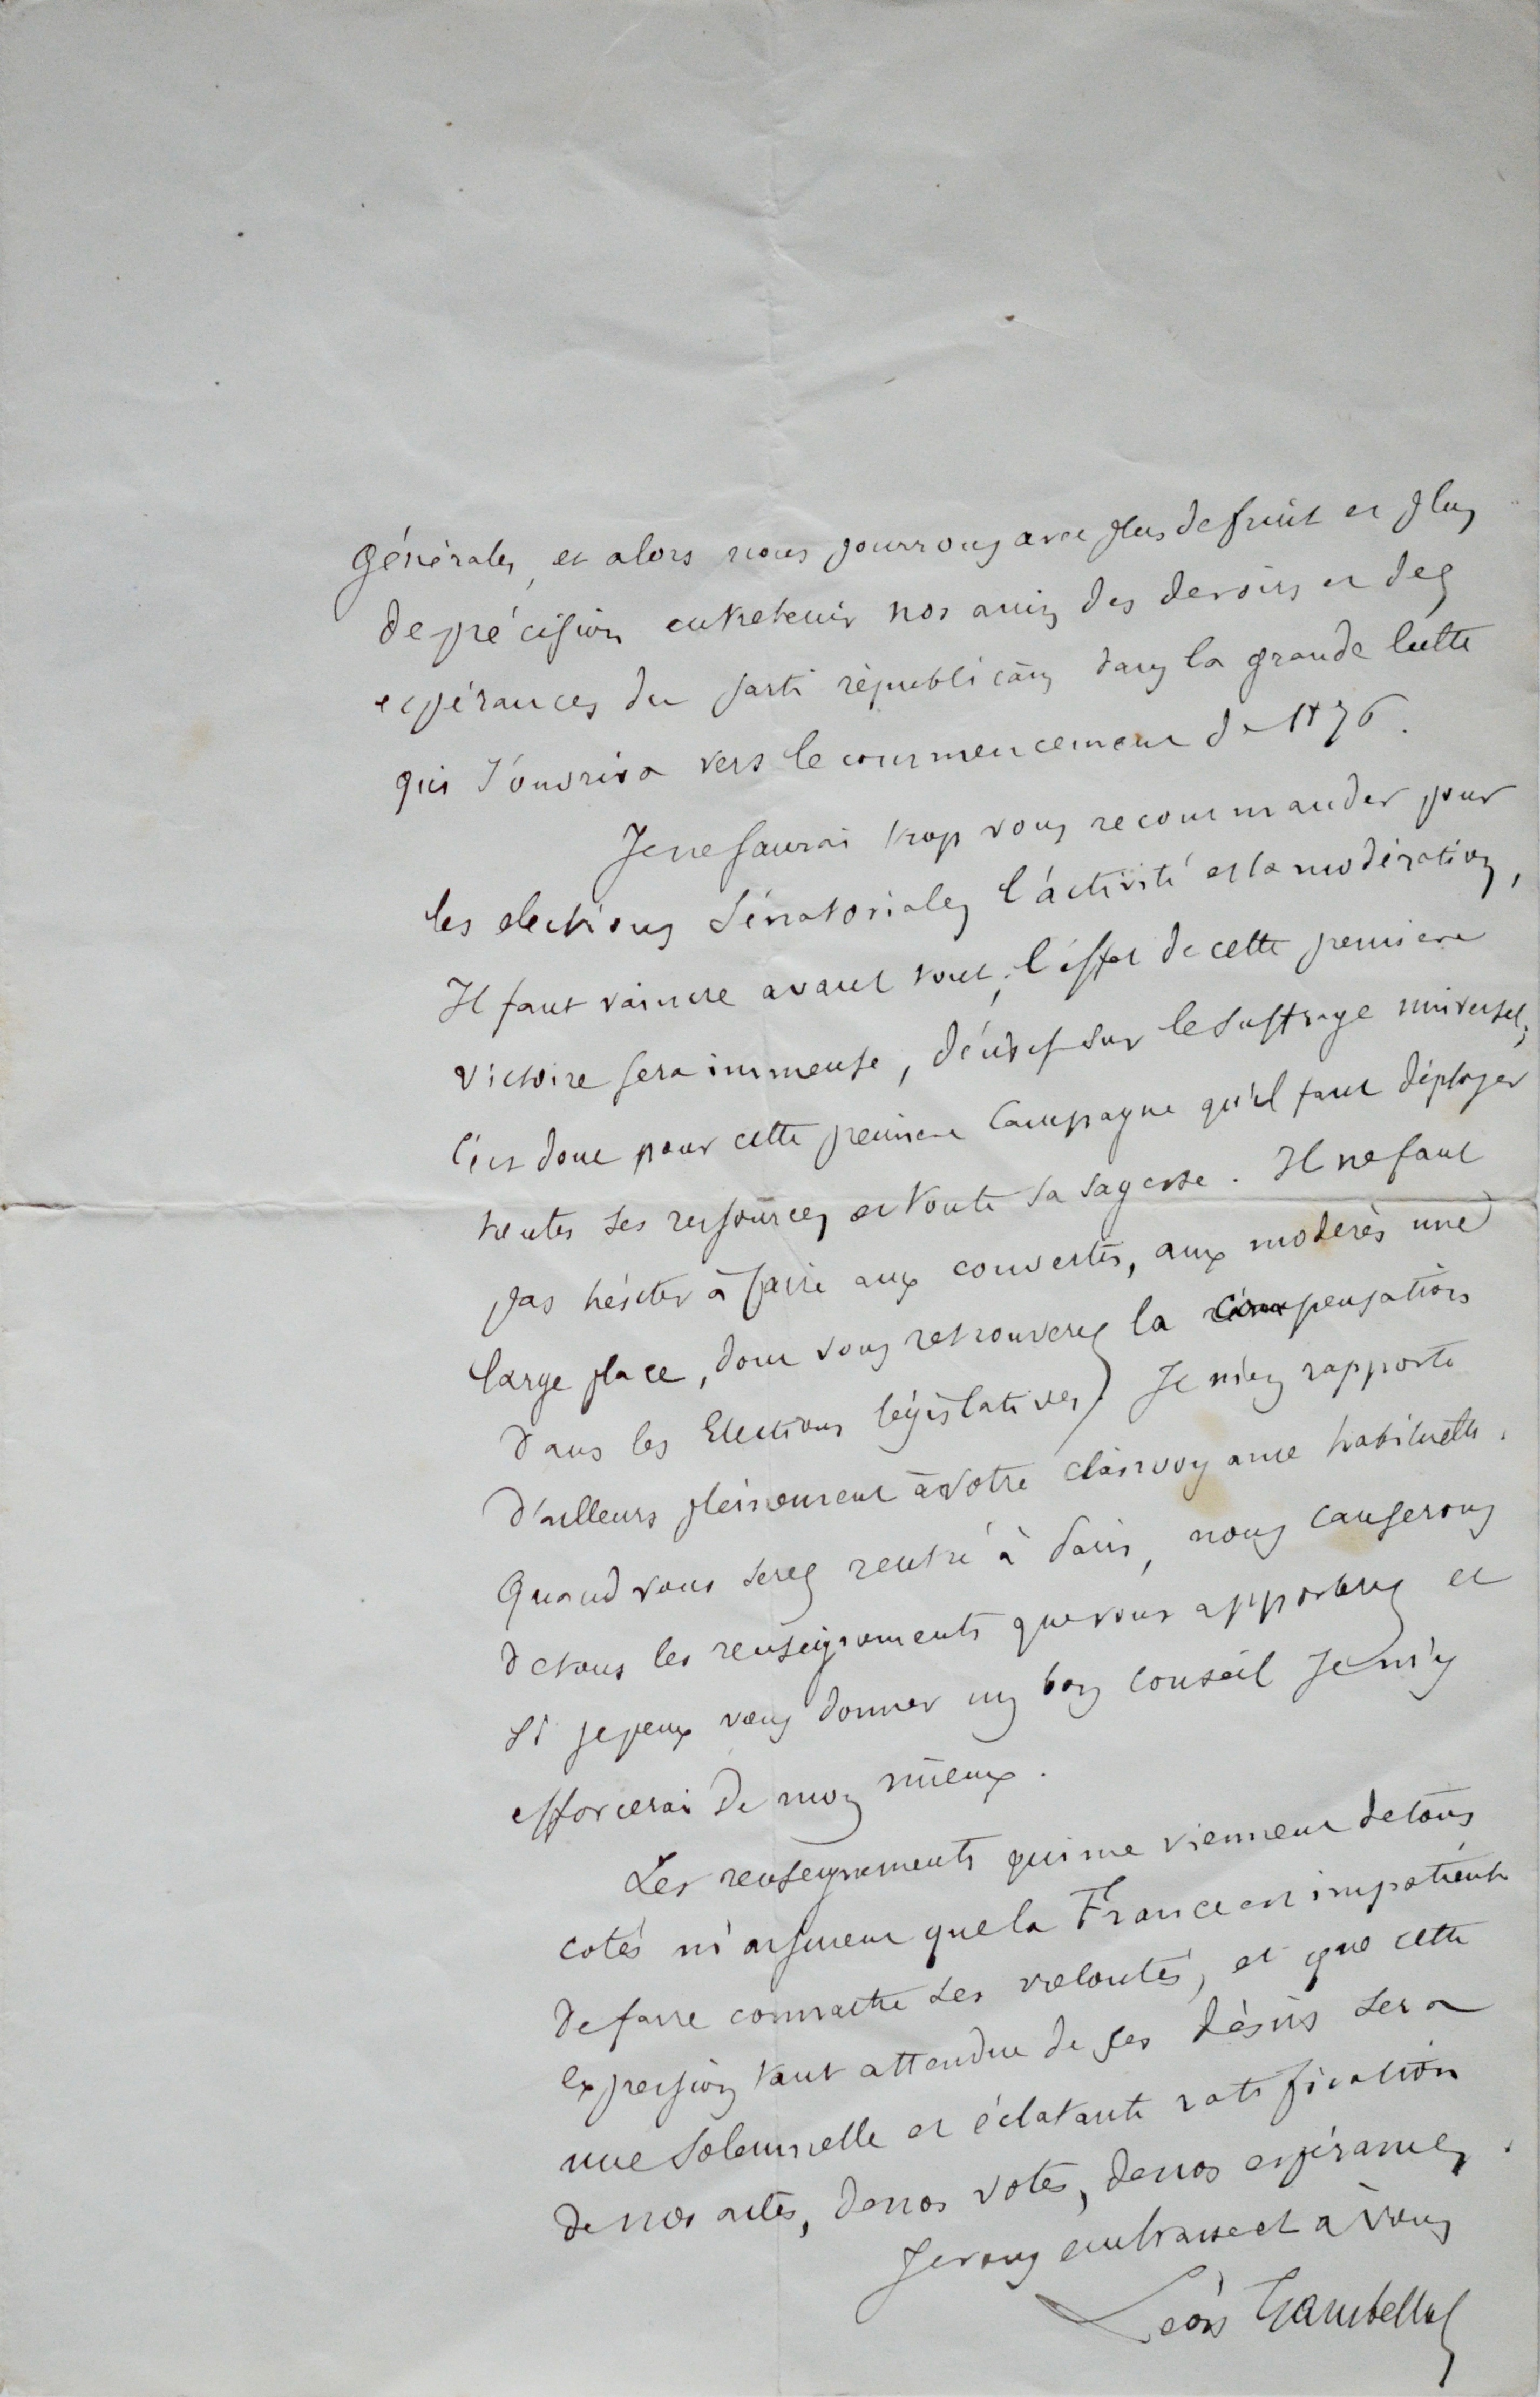 générales, et alors nous pourrons avec plus de fruit et plus
de précision entretenir nos amis des devoirs et des
espérances du parti républicain dans la grande lutte
qui s'ouvrira vers le commencement de 1876.
Je ne saurai trop vous recommander pour
les elections sénatoriales l'activité et la modération,
Il faut vaincre avant tout; l'effet de cette premiere
victoire sera immense, décisif sur le suffrage universel,
c'est donc pour cette premiere campagne qu'il faut déployer
toutes ses ressources et toute sa sagesse. Il ne faut
pas hésiter à faire aux convertis, aux modérés une
large place, dont vous retrouverez la compensation
dans les Elections législatives. Je m'en rapporte
d'ailleurs pleinement à votre clairvoyance habituelle.
Quand vous serez rentré à Paris, nous causerons
de tous les renseignements que vous apporterez et
si je peux vous donner un bon conseil je m'y
efforcerai de mon mieux.
Les renseignements qui me viennent de tous
cotés m'assurent que la France est impatiente
de faire connaitre ses volontés, et que cette
expression tant attendue de ses désirs sera
une solennelle et éclatante ratification
de nos actes, de nos votes, de nos espérances.
Je vous embrasse et à vous
Léon Gambetta